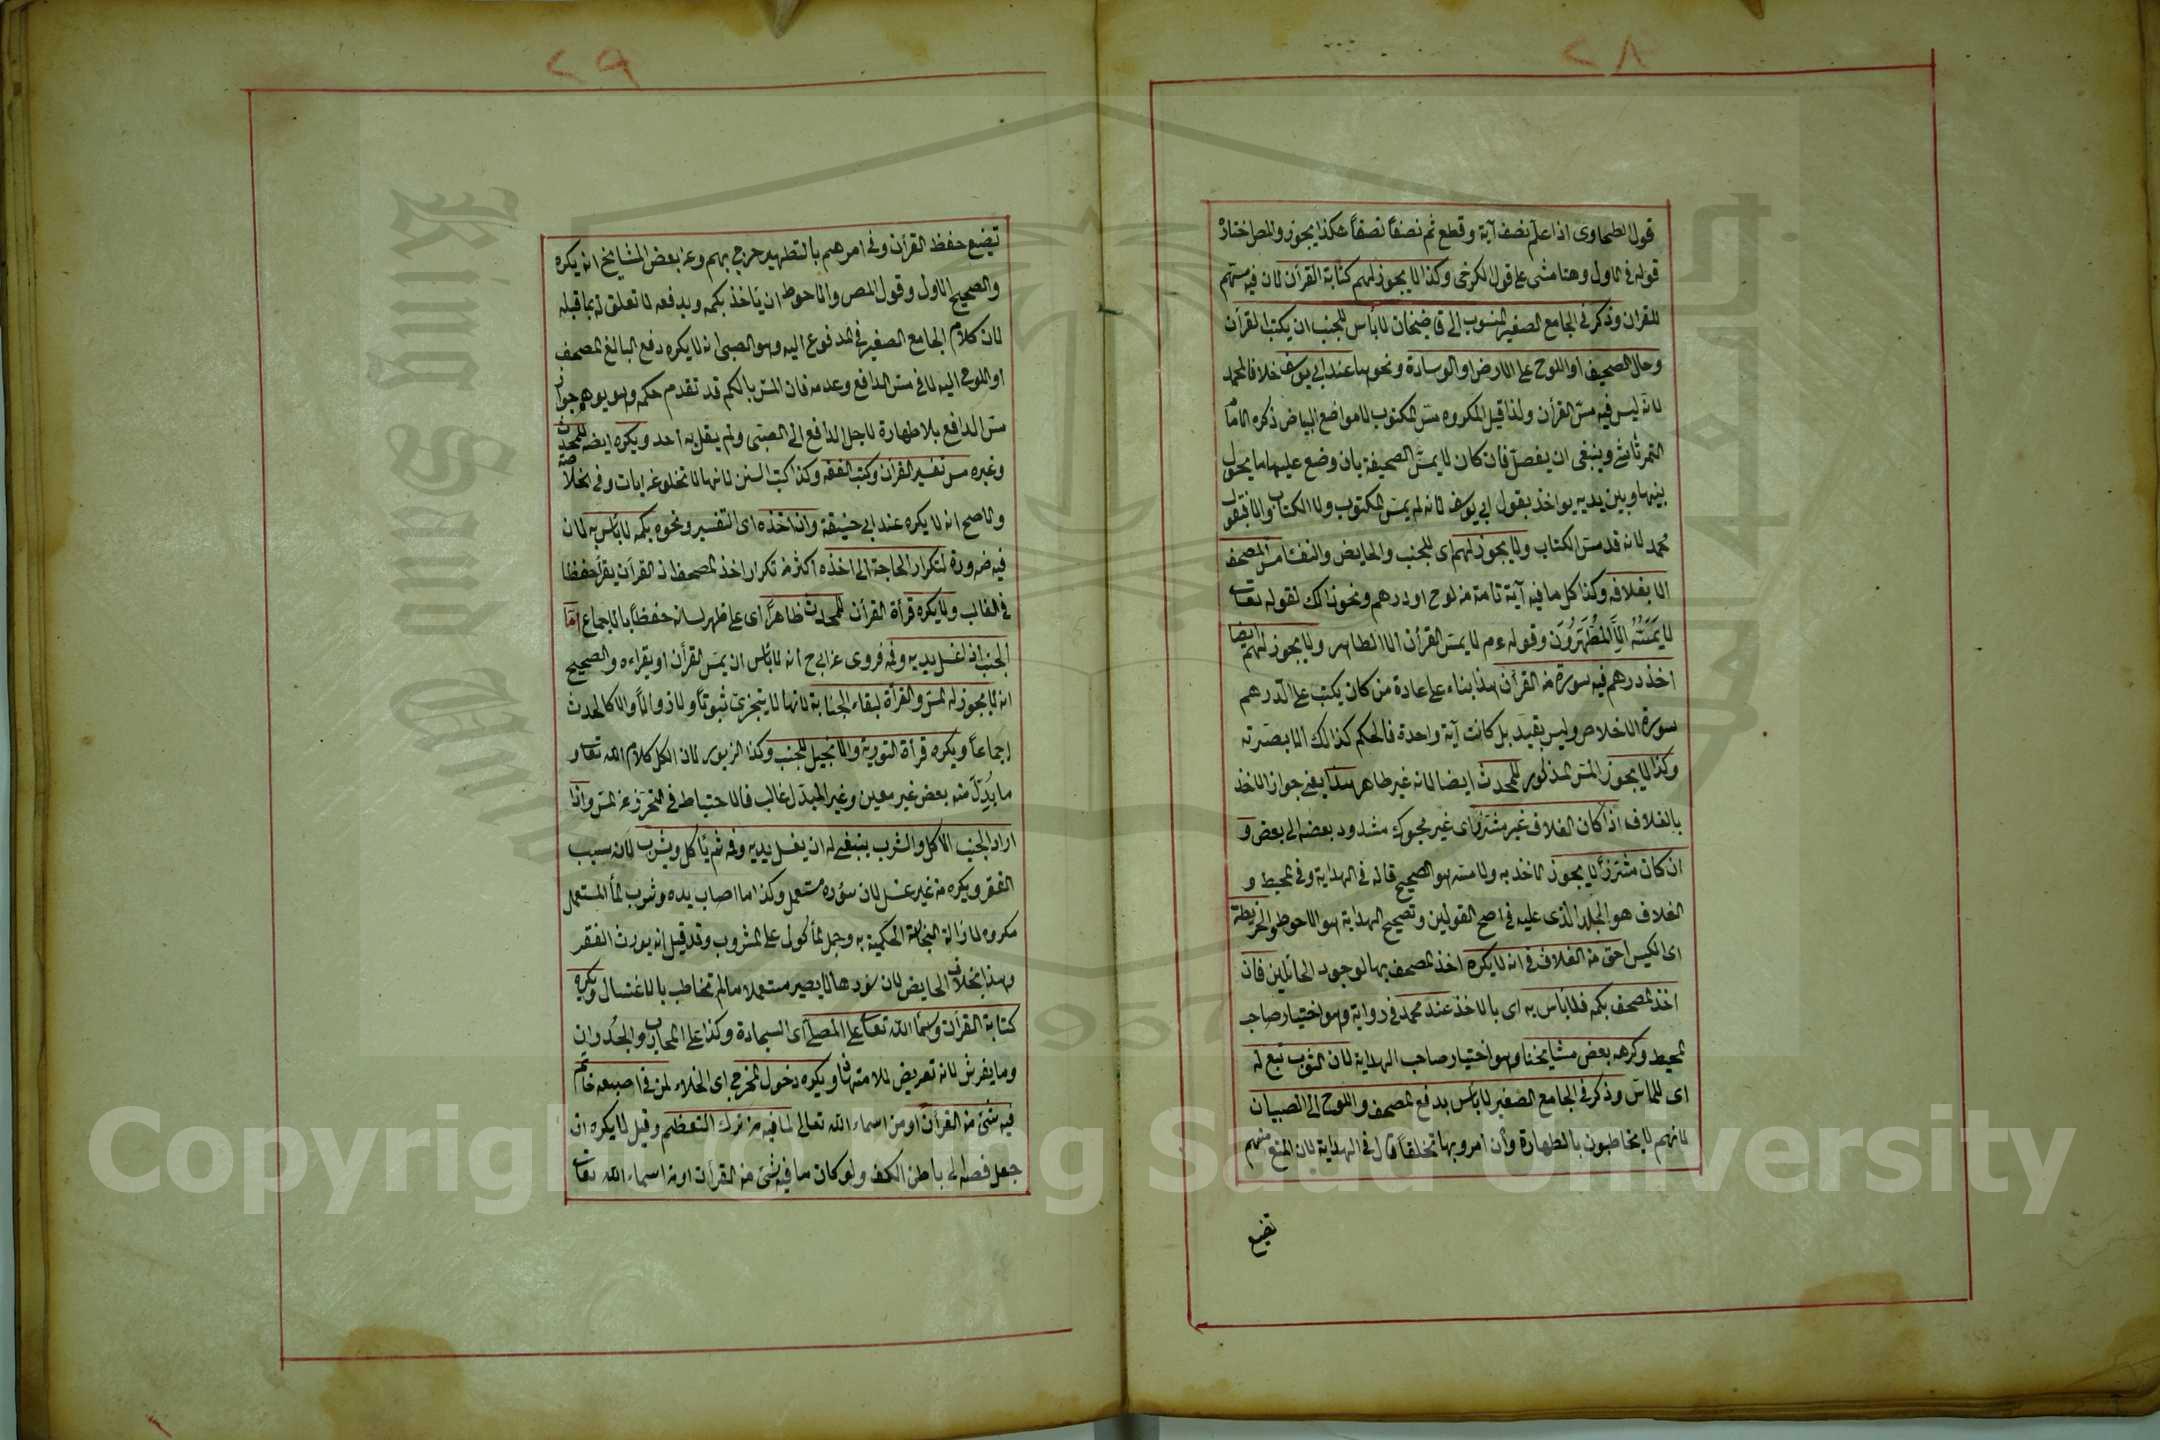 ٢٨
قول الطحاوى اذا علم نصف آية وقطع ثم نصفاً نصفاً هكذا يجوز والمص اختار
قوله فى الاول وهنا مشى على قول الكرخى وكذا لا يجوز لهم كتابة القرآن لان فيه مسهم
للقران وذكر فى الجامع الصغير المنسوب الى قاضيخان لا بأس للجنب ان يكتب القرآن
وحال الصحيف او اللوح على الارض او الوسادة ونحوهما عند ابى يوسف خلافا لمحمد
لانه ليس فيه مس القرآن ولذا قيل المكروه مس المكتوب لا مواضع البياض ذكره الامام
التمرتاشى وينبغى ان يفصل فان كان لا يمس الصحيفة بان وضع عليها ما يحول
بينها وبين يديه يؤاخذ بقول ابى يوسف لانه لم يمس المكتوب ولا الكتاب والا فبقول
محمد لانه قد مس الكتاب ولا يجوز لهم اى للجنب والحايض والنفساء مس المصحف
الا بغلافه وكذا كل ما فيه آية تامة من لوح او درهم ونحو ذالك لقوله تعالى
لا يَمَسُّهُ اِلاَّ المُطَهَّرُونَ وقوله ءم لا يمس القرآن الا الطاهر ولا يجوز لهم ايضا
اخذ درهم فيه سورة من القرآن هذا بناء على عادة من كان يكتب على الدرهم
سورة الاخلاص وليس بقيد بل كانت آية واحدة فالحكم كذالك الا بصرته
وكذا لا يجوز المس المذكور للمحدث ايضا لانه غير طاهر هذا يعنى جواز الاخذ
بالغلاف اذا كان الغلاف غير مشترز اى غير محبوك مشدود بعضه الى بعض و
ان كان مشترزاً لا يجوز الاخذ به ولا مسه هو الصحيح قاله فى الهداية وفى المحيط و
الغلاف هو الجلد الذى عليه فى اصح القولين وتصحيح الهداية هو الاحوط والخريطة
اى الكيس احق من الغلاف فى انه لا يكره اخذ المصحف بها لوجود الحائلين فان
اخذ المصحف بكمه فلا بأس به اى بالاخذ عند محمد فى رواية وهو اختيار صاحب
المحيط وكرهه بعض مشايخنا وهو اختيار صاحب الهداية لان الثوب تبع له
اى للماس وذكر فى الجامع الصغير لا بأس بدفع المصحف واللوح الى الصبيان
لانهم لا يخاطبون بالطهارة وأن امروبها تخلقاً قال فى الهداية لان المنع منهم
تضيع
٢٩
تضيع حفظ القرآن وفى امرهم بالتطهير حرج بهم وعن بعض المشايخ انه يكره
والصحيح الاول وقول المص والاحوط ان يأخذ بكمه ويدفعه لا تعلق له بما قبله
لان كلام الجامع الصغير فى المدفوع اليه وهو الصبى انه لا يكره دفع البالغ المصحف
او اللوح اليه لا فى مس الدافع وعدمه فان المس بالكم قد تقدم حكمه وهو يوهم جواز
مس الدافع بلا طهارة لاجل الدافع الى الصبى ولم يقل به احد ويكره ايضا للمحدث
وغيره مس تفسير القرآن وكتب الفقه وكذا كتب السنن لانها لا تخلو عن ايات وفى الخلاصة
والاصح انه لا يكره عند ابى حنيفة وان اخذه اى التفسير ونحوه بكمه لا بأس به لان
فيه ضرورة لتكرار الحاجة الى اخذه اكثر من تكرار اخذ المصحف اذ القرآن يقرأ حفظا
فى الغالب ولا يكره قرأة القرآن للمحدث ظاهراً اى على ظهر لسانه حفظاً بالاجماع امّا
الجنب اذا غسل يديه وفمه فروى عن ابى ح انه لا بأس ان يمس القرآن او يقراءه والصحيح
انه لا يجوز له المس والقرأة لبقاء الجنابة لانها لا يتجزى ثبوتاً ولا زوالاً والا كالحدث
اجماعاً ويكره قرأة التورية والانجيل للجنب وكذا الزبور لان الكل كلام الله تعا و
ما بُدِّل منه بعض غير معين وغير المبدل غالب فالاحتياط فى التحرز عن المس واذا
اراد الجنب الاكل والشرب ينبغى له ان يغسل يديه وفمه ثم يأكل ويشرب لانه سبب
الفقر ويكره من غير غسل لان سؤره مستعمل وكذا ما اصاب يده وشرب المأ المستعمل
مكروه لازالة النجاسة الحكمية به وحمل المأكول على المشروب وقد قيل انه يورث الفقر
وهذا بخلاف الحايض لان سؤرها لا يصير مستعملا ما لم تخاطب بالاغتسال ويكره
كتابة القرآن وسما الله تعا على المصلى اى السجادة وكذا على المحاريب والجُدران
وما يفرش لانه تعريض للامتهان ويكره دخول المخرج اى الخلاء لمن فى اصبعه خاتم
فيه شئ من القرآن او من اسماء الله تعالى لما فيه من ترك التعظيم وقيل لا يكره ان
جعل فصه الى باطن الكف ولو كان ما فيه شئ من القرآن او من اسماء الله تعا
King Saud University
1957
Copyright © King Saud University